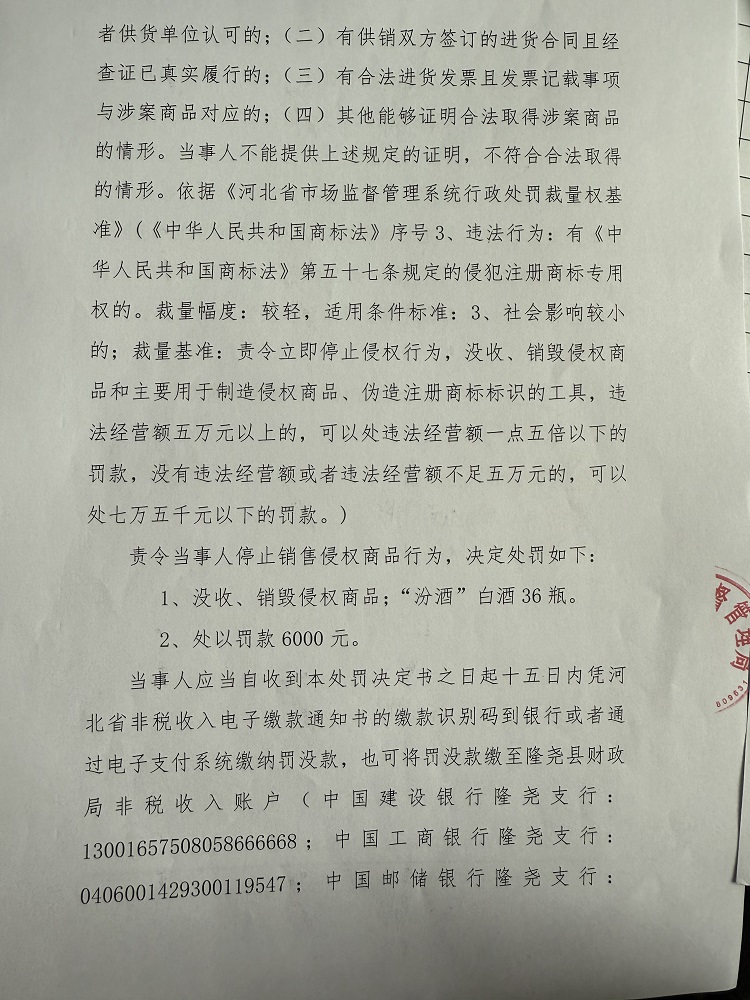 者供货单位认可的；（二）有供销双方签订的进货合同且经
查证已真实履行的；（三）有合法进货发票且发票记载事项
与涉案商品对应的；（四）其他能够证明合法取得涉案商品
的情形。当事人不能提供上述规定的证明，不符合合法取得
的情形。依据《河北省市场监督管理系统行政处罚裁量权基
准》(《中华人民共和国商标法》序号3、违法行为：有《中
华人民共和国商标法》第五十七条规定的侵犯注册商标专用
权的。裁量幅度：较轻，适用条件标准：3、社会影响较小
的；裁量基准：责令立即停止侵权行为，没收、销毁侵权商
品和主要用于制造侵权商品、伪造注册商标标识的工具，违
法经营额五万元以上的，可以处违法经营额一点五倍以下的
罚款，没有违法经营额或者违法经营额不足五万元的，可以
处七万五千元以下的罚款。)
责令当事人停止销售侵权商品行为，决定处罚如下：
1、没收、销毁侵权商品；“汾酒”白酒36瓶。
2、处以罚款6000元。
当事人应当自收到本处罚决定书之日起十五日内凭河
北省非税收入电子缴款通知书的缴款识别码到银行或者通
过电子支付系统缴纳罚没款，也可将罚没款缴至隆尧县财政
局非税收入账户（中国建设银行隆尧支行：
13001657508058666668；中国工商银行隆尧支行：
0406001429300119547；中国邮储银行隆尧支行：
管理局